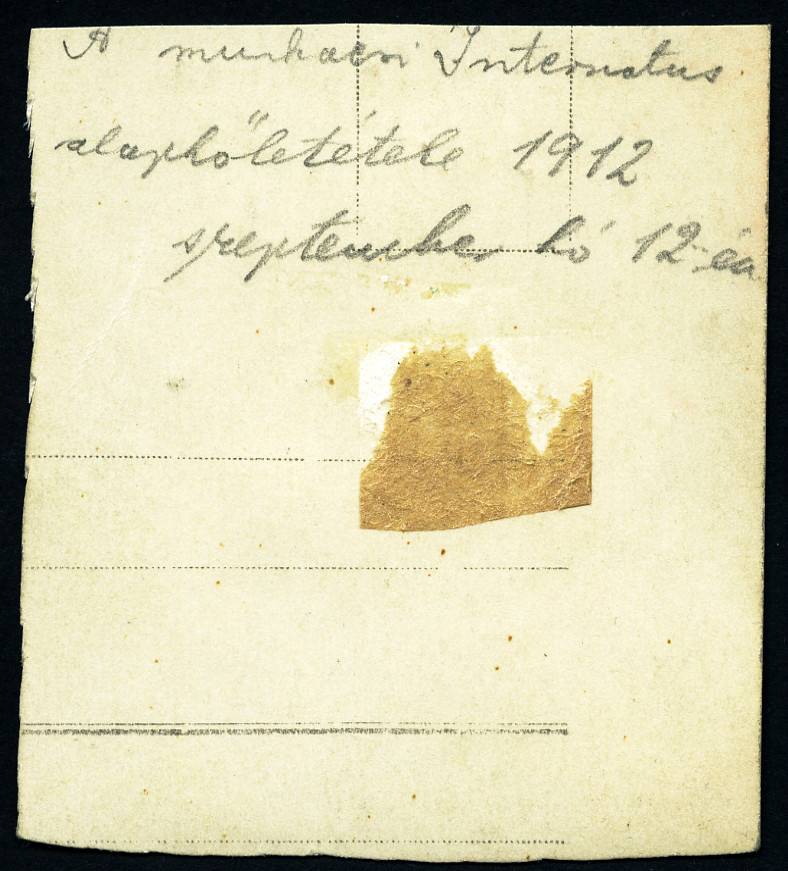 A munkácsi Internátus
alapkőletétele 1912
szeptember hó 12-én